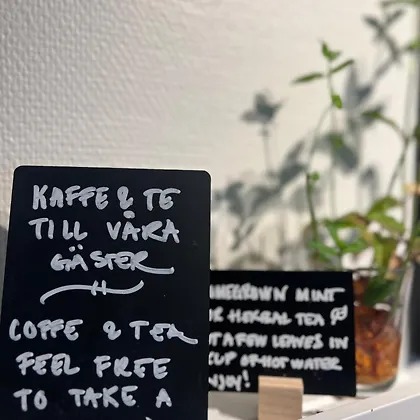 KAFFE & TE
TILL VÅRA
GÄSTER
COFFE & TEA
FEEL FREE
TO TAKE A
MINT
HERBAL TEA
A FEW LEAVES IN
CUP OF HOT WATER